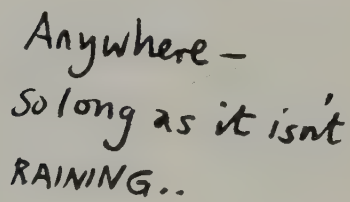 Anywhere –
so long as it isn't
RAINING..